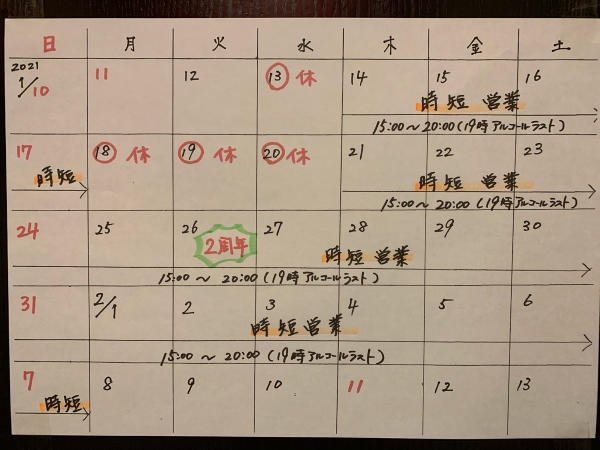 日 月 火 水 木 金 土
2021
1/10 11 12 13 休 14 15 16
時短 営業
15:00～20:00(19時アルコールラスト)
17 18 休 19 休 20 休 21 22 23
時短
時短 営業
15:00～20:00(19時アルコールラスト)
24 25 26 27 28 29 30
2周年
時短 営業
15:00 ～ 20:00(19時アルコールラスト)
31 2/1 2 3 4 5 6
時短営業
15:00 ～ 20:00(19時アルコールラスト)
7 8 9 10 11 12 13
時短